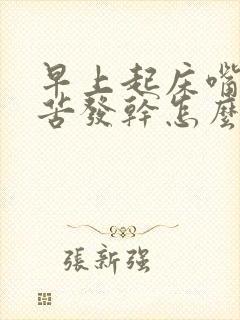 早上起床嘴
苦發幹怎麼
張新强